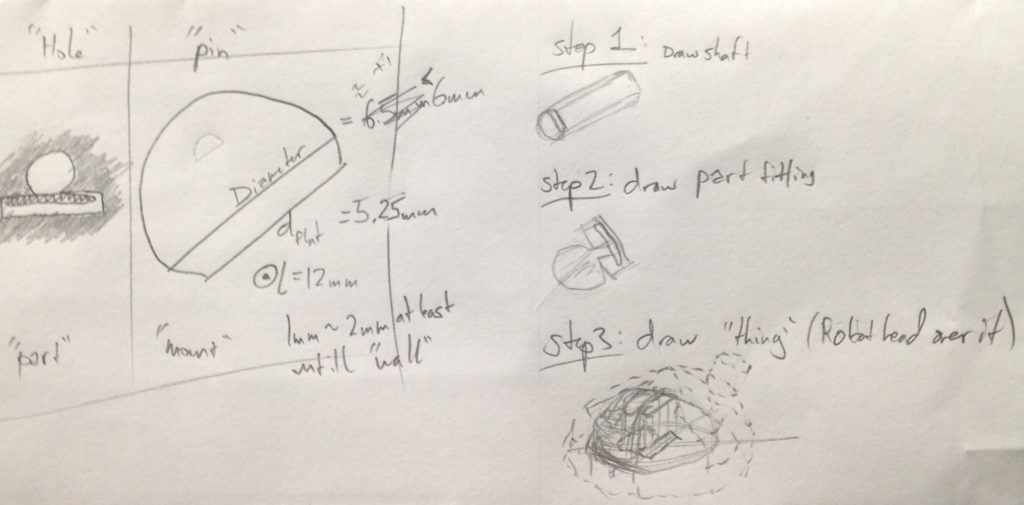 "Hole"
"pin"
= 6.5mm 6mm
Diameter
d flat = 5.25mm
l = 12mm
1mm ~ 2mm at least
untill "wall"
"part"
"mount"
Step 1: Draw shaft
step2: draw part fitting
step3: draw "thing" (Robot head over it)